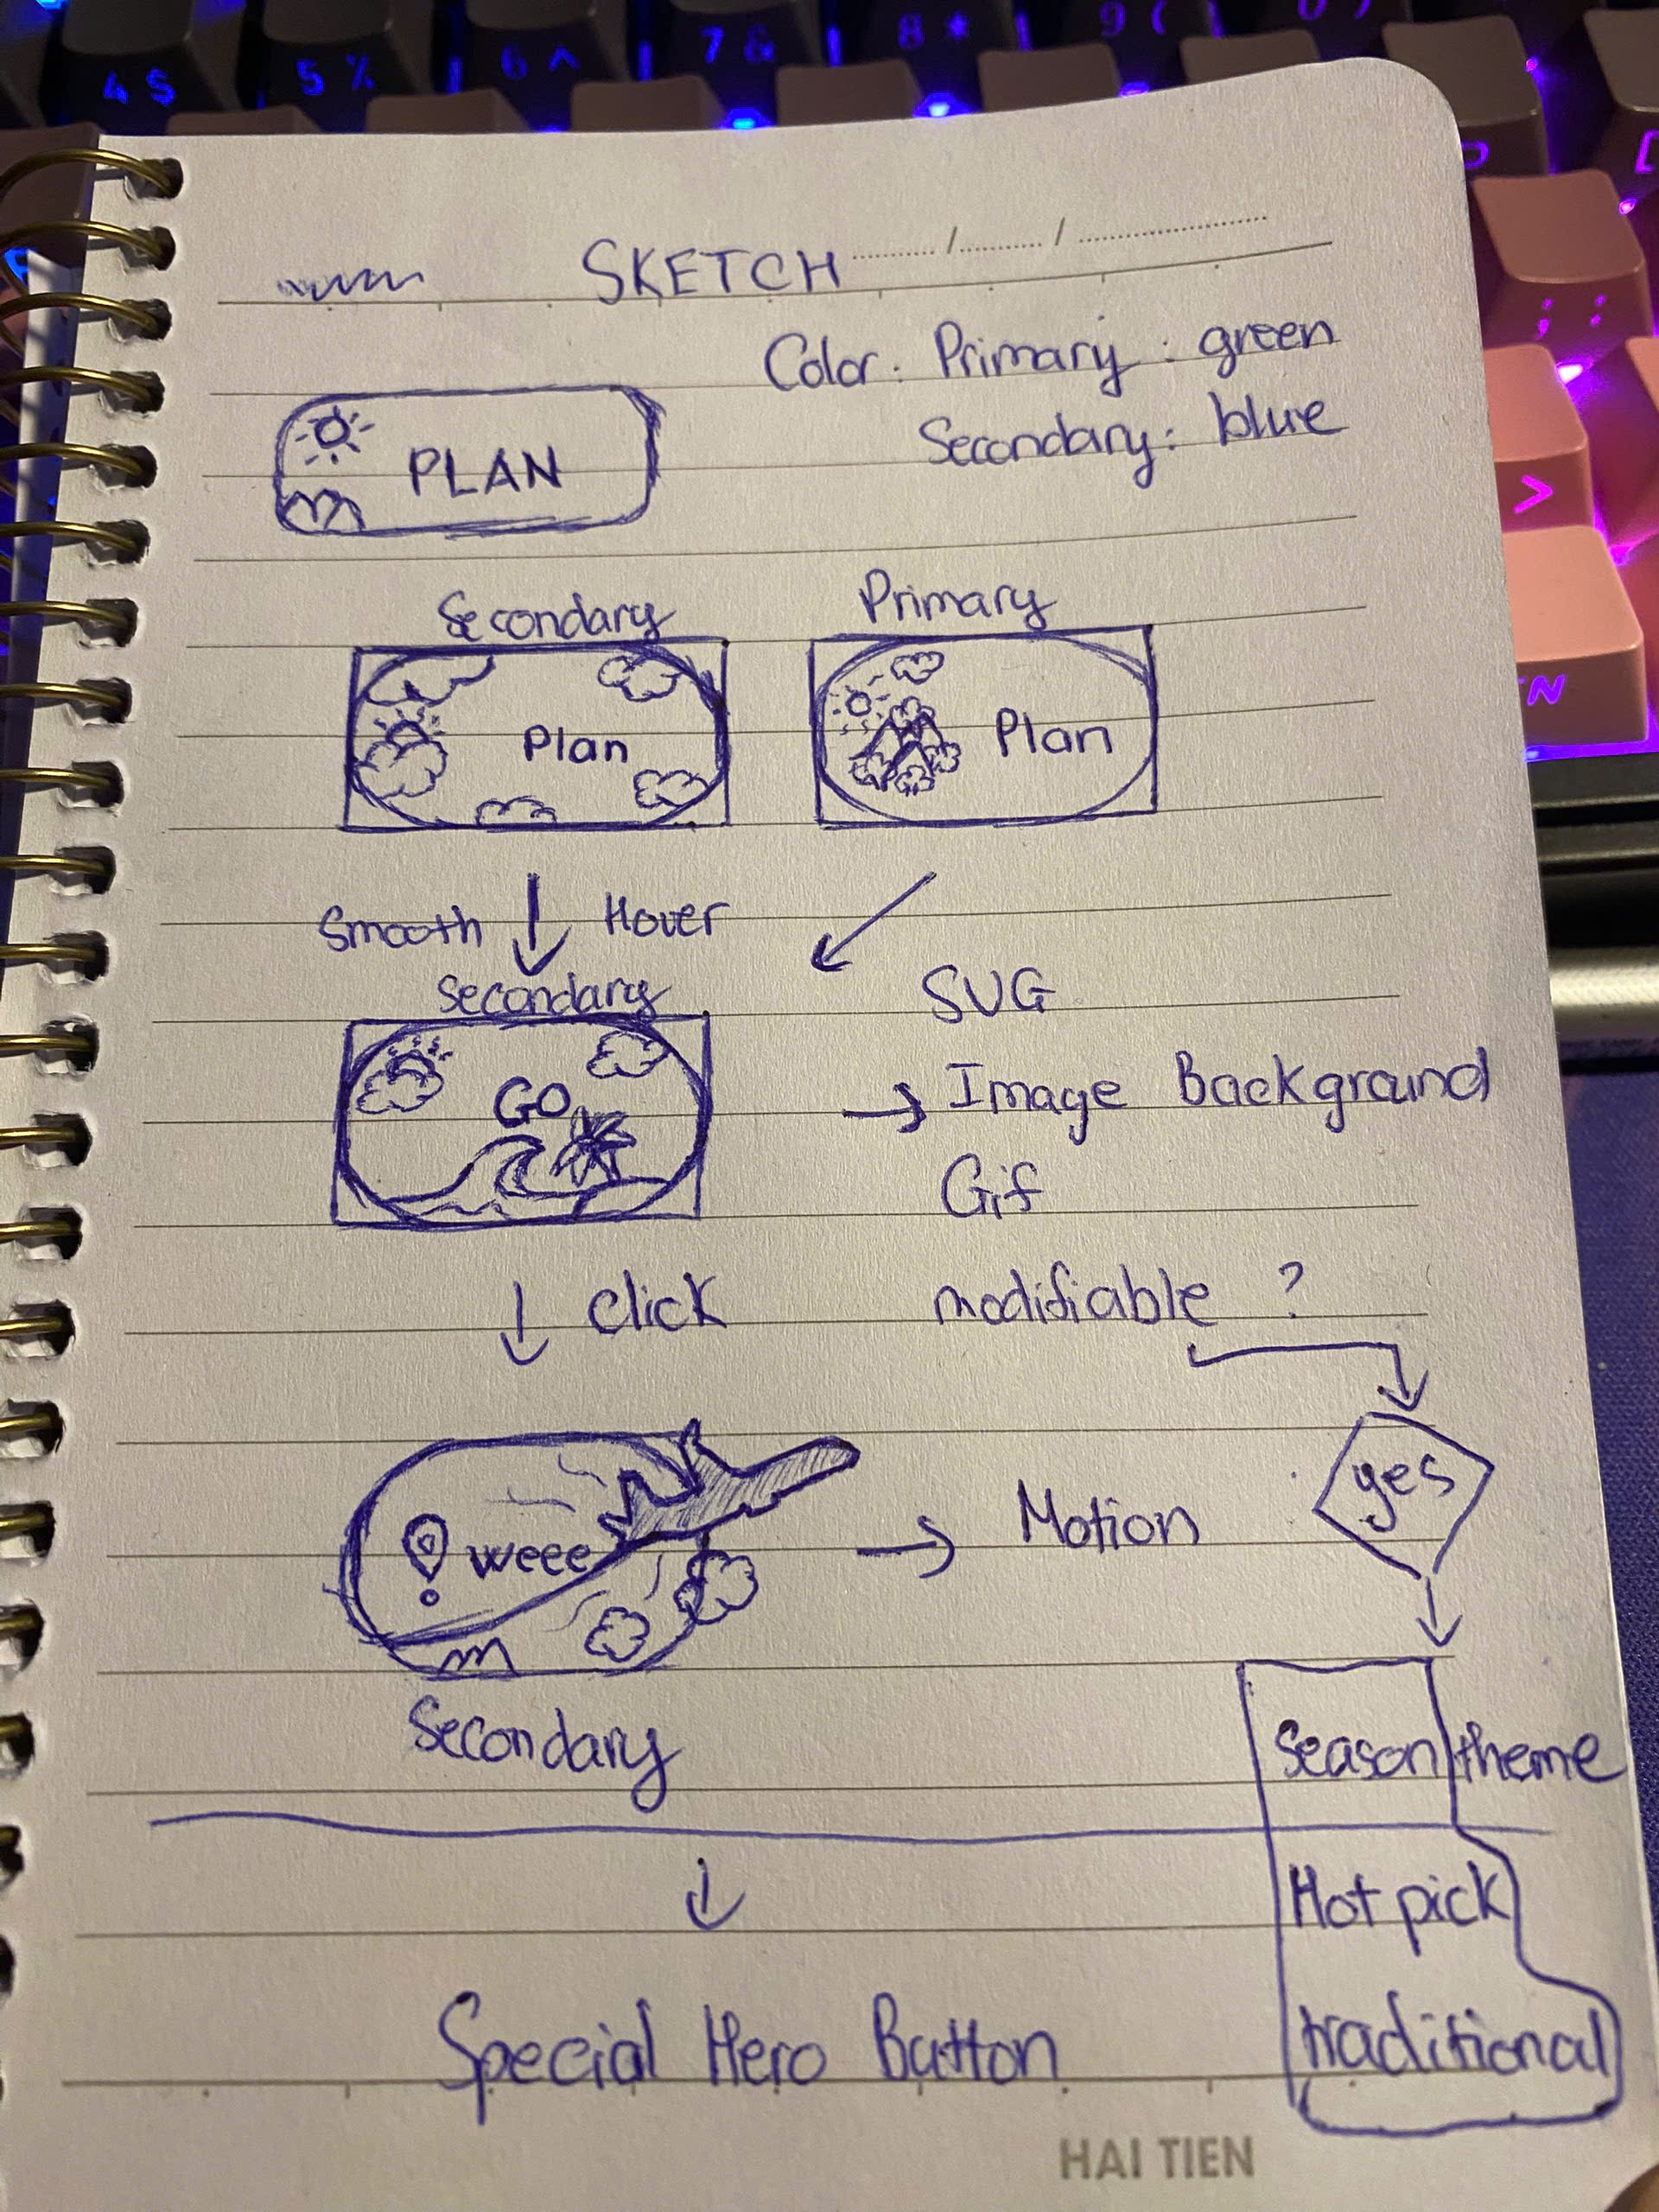 4 $ 5 % 6 ^ 7 & 8 * 9 ( 0 )
P [
; :
>
SKETCH / /
Color: Primary: green
Secondary: blue
PLAN
Secondary Primary
Plan Plan
Smooth Hover
Secondary
SVG
GO
→ Image Background
Gif
Click modifiable ?
yes
weee → Motion
Secondary
Season theme
Hot pick
traditional
Special Hero Button
HAI TIEN